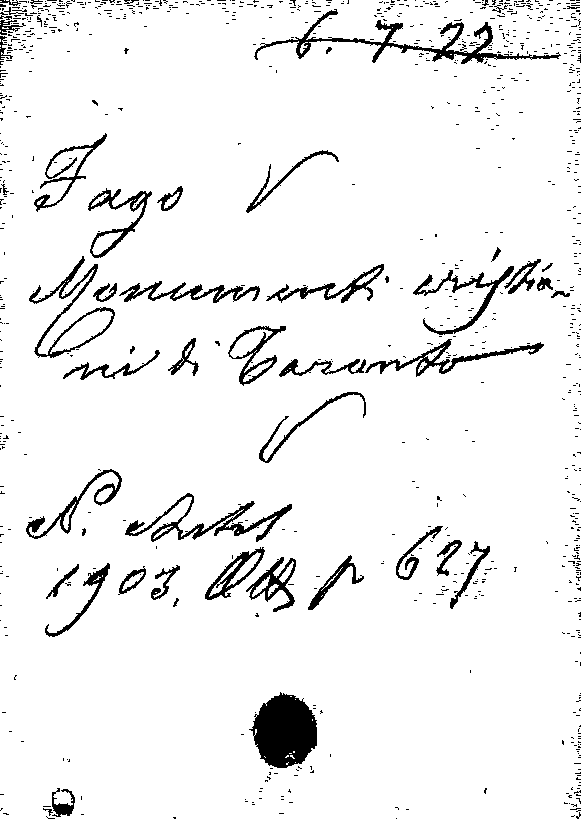 6. 7. 22
Fago
Monumenti cristia-
ni di Taranto
N.
1903. Ott p 627